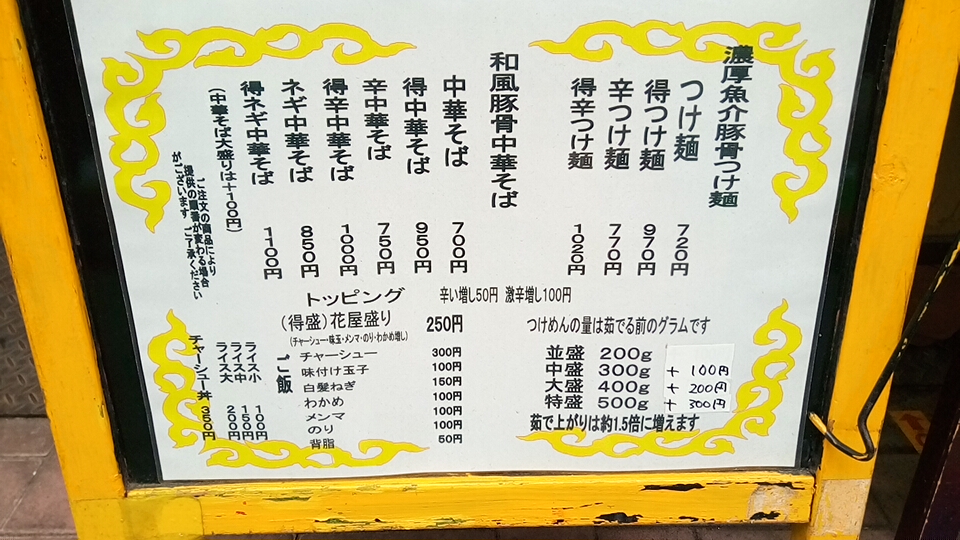 濃厚魚介豚骨つけ麺
つけ麺 720円
得つけ麺 970円
辛つけ麺 770円
得辛つけ麺 1020円
和風豚骨中華そば
中華そば 700円
得中華そば 950円
辛中華そば 750円
得辛中華そば 1000円
ネギ中華そば 850円
得ネギ中華そば 1100円
(中華そば大盛りは+100円)
ご注文の商品により
提供の順番が変わる場合
がございます ご了承ください
トッピング 辛い増し50円 激辛増し100円
(得盛)花屋盛り 250円
(チャーシュー・味玉・メンマ・のり・わかめ増し)
チャーシュー 300円
味付け玉子 100円
白髪ねぎ 150円
わかめ 100円
メンマ 100円
のり 100円
背脂 50円
ご飯
ライス小 100円
ライス中 150円
ライス大 200円
チャーシュー丼 350円
つけめんの量は茹でる前のグラムです
並盛 200g
中盛 300g + 100円
大盛 400g + 200円
特盛 500g + 300円
茹で上がりは約1.5倍に増えます